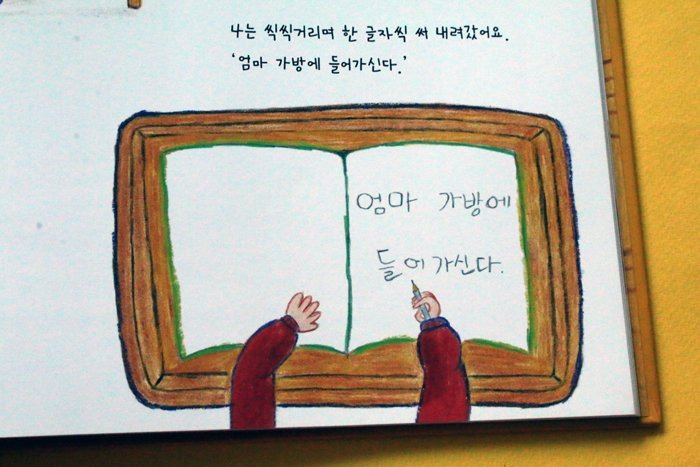 나는 씩씩거리며 한 글자씩 써 내려갔어요.
'엄마 가방에 들어가신다.'
엄마 가방에
들어가신다.